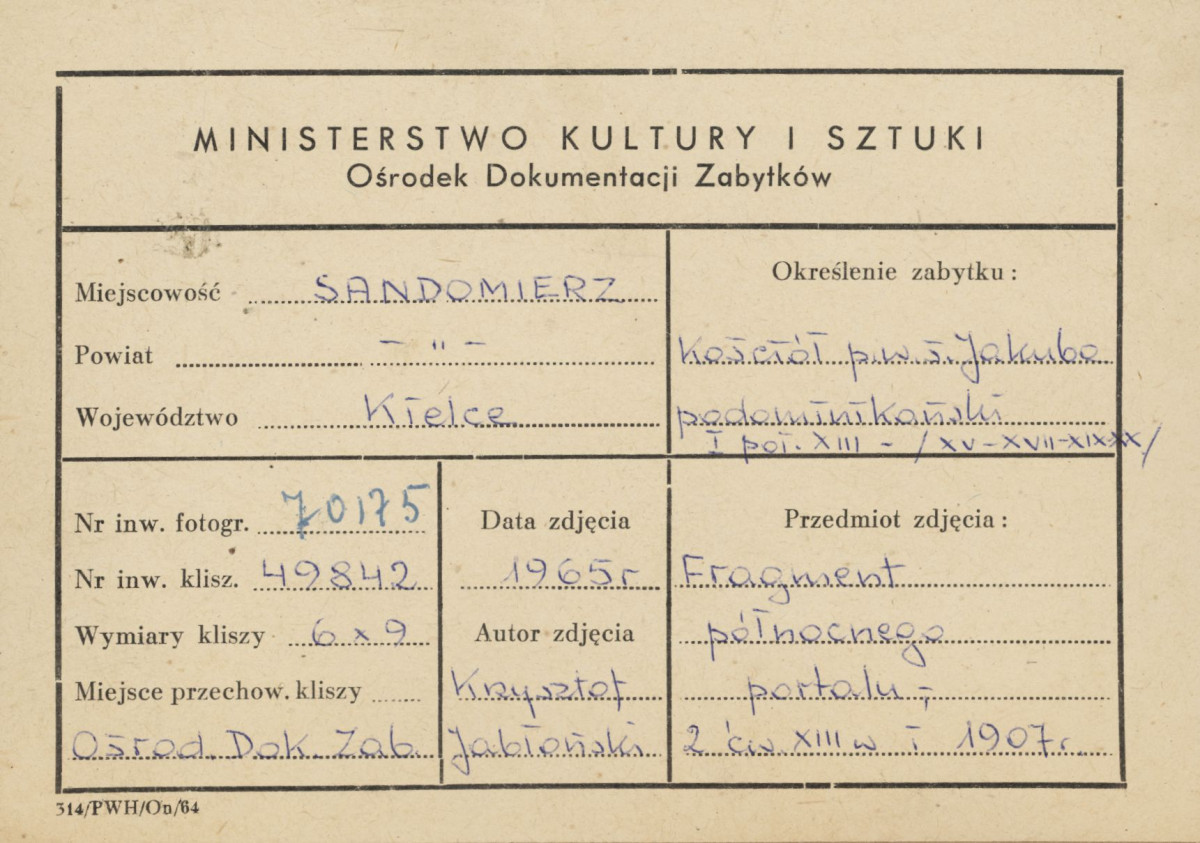 MINISTERSTWO KULTURY I SZTUKI
Ośrodek Dokumentacji Zabytków
Miejscowość SANDOMIERZ
Powiat — " —
Województwo Kielce
Określenie zabytku:
Kościół p.w. ś. Jakuba
podominikański
I poł. XIII - /XV-XVII-XIX-XX/
Nr inw. fotogr. 70175
Nr inw. klisz. 49842
Wymiary kliszy 6 x 9
Miejsce przechow. kliszy
Ośrod. Dok. Zab.
Data zdjęcia
1965 r
Autor zdjęcia
Krzysztof
Jabłoński
Przedmiot zdjęcia:
Fragment
północnego
portalu -,
2 ćw XIII w i 1907 r.
314/PWH/On/64